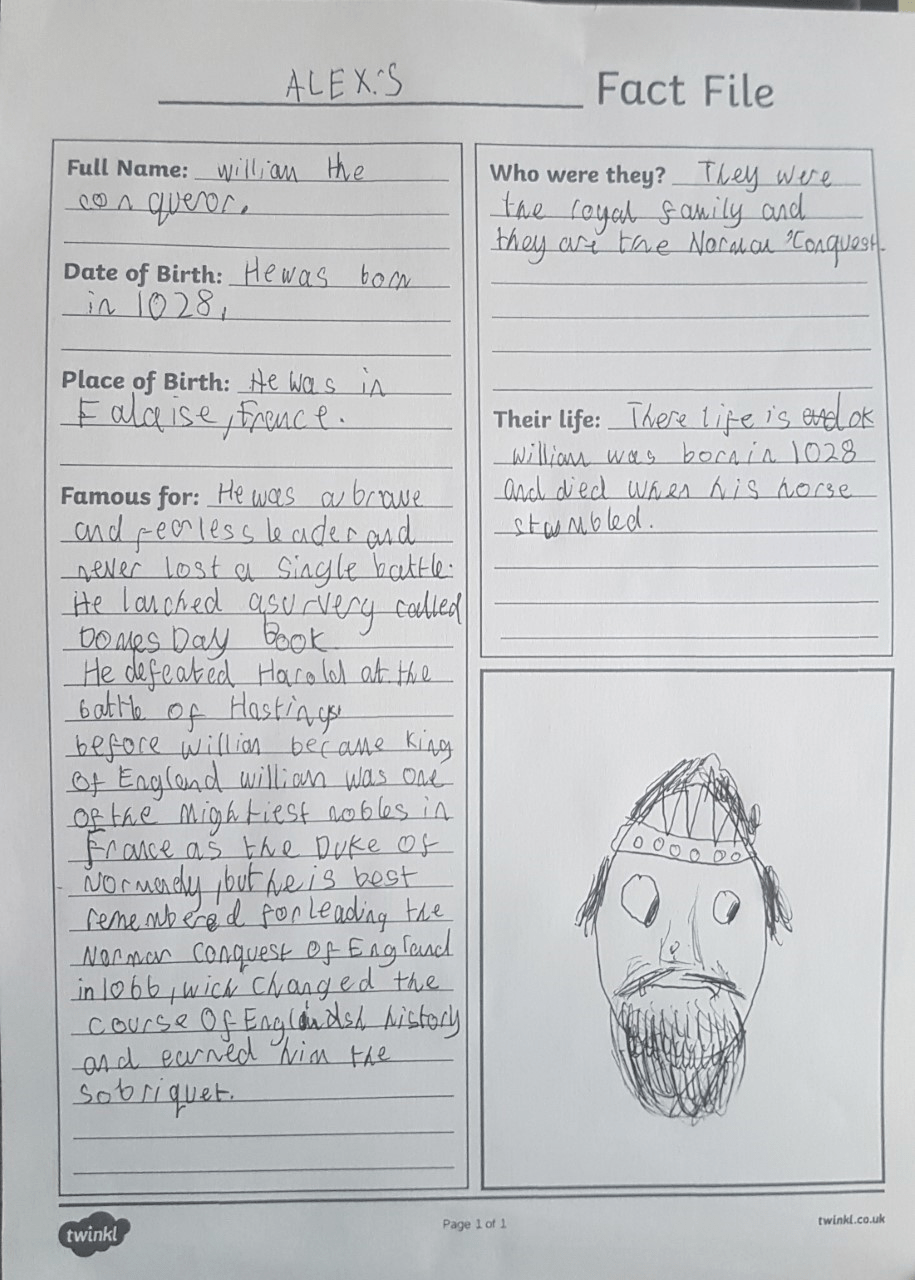 ALEX'S Fact File
Full Name: willian the
conqueror.
Date of Birth: He was born
in 1028,
Place of Birth: He was in
Falaise, France.
Famous for: He was a brave
and fearless leader and
never lost a single battle.
He lanched a survery called
Domes Day Book
He defeated Harold at the
battle of Hastings
before willian became King
Of England willian was one
of the Mightiest nobles in
France as the Duke OF
Normandy, but he is best
remembered for leading the
Norman Conquest Of England
in 1066, wich changed the
course Of Englandsh history
and earned him the
sobriquet.
Who were they? They were
the royal family and
they are the Norman Conquest.
Their life: There life is ok
willian was born in 1028
and died when his horse
stumbled.
twinkl
Page 1 of 1
twinkl.co.uk